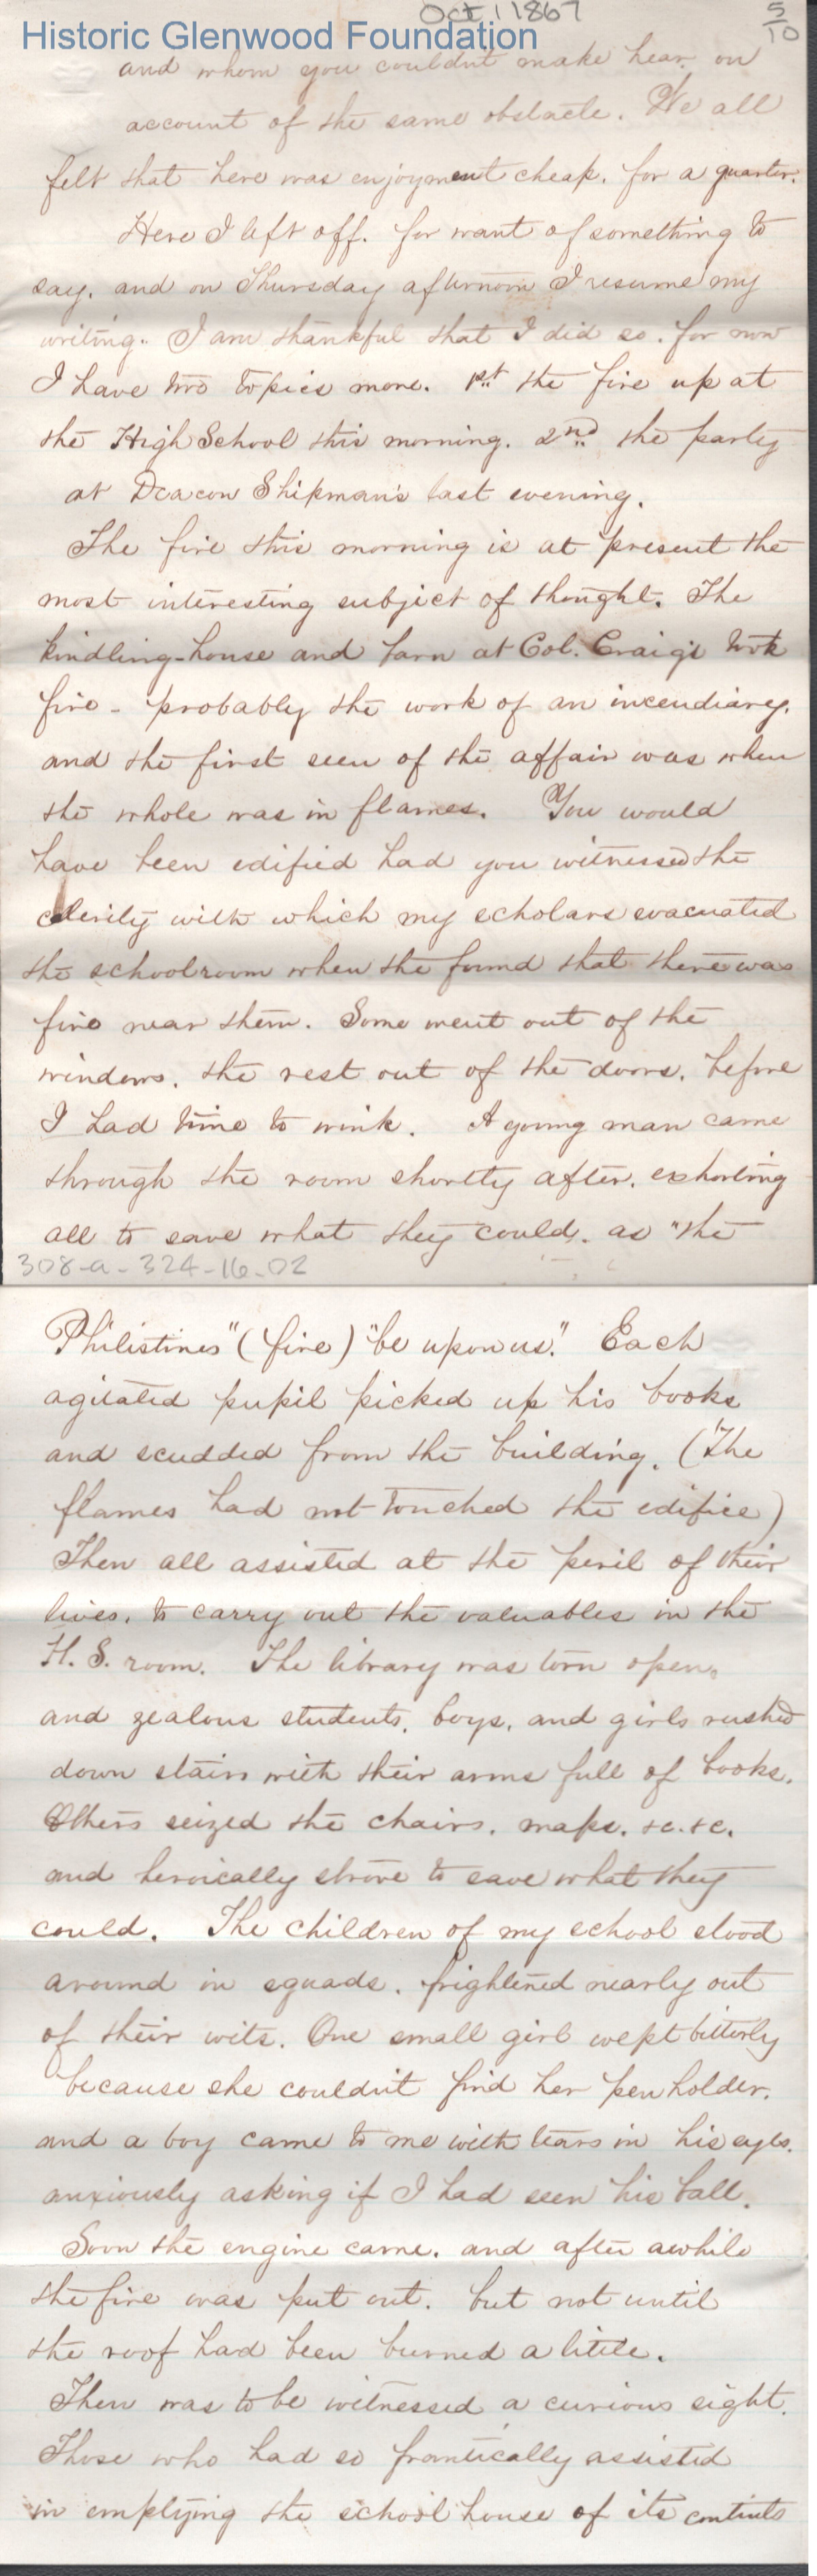 Oct, 1867
5/10
Historic Glenwood Foundation
and whom you couldn't make hear on
account of the same obstacle. We all
felt that here was enjoyment cheap. for a quarter.
Here I left off. for want of something to
say. and on Thursday afternoon I resume my
writing. I am thankful that I did so. for now
I have two topics more. 1st the fire up at
the High School this morning. 2nd the party
at Deacon Shipman's last evening.
The fire this morning is at present the
most interesting subject of thought. The
kindling-house and barn at Col. Craig's took
fire - probably the work of an incendiary.
and the first seen of the affair was when
the whole was in flames. You would
have been edified had you witnessed the
celerity with which my scholars evacuated
the schoolroom when the found that there was
fire near them. Some went out of the
windows. the rest out of the doors. before
I had time to wink. A young man came
through the room shortly after. exhorting
all to save what they could. as "the
308-a-324-16-02
Philistines" (fire) "be upon us." Each
agitated pupil picked up his books
and scudded from the building. (The
flames had not touched the edifice)
Then all assisted at the peril of their
lives. to carry out the valuables in the
H. S. room. The library was torn open.
and zealous students. boys. and girls rushed
down stairs with their arms full of books.
Others seized the chairs. maps. &c. &c.
and heroically strove to save what they
could. The children of my school stood
around in squads. frightened nearly out
of their wits. One small girl wept bitterly
because she couldn't find her pen holder.
and a boy came to me with tears in his eyes.
anxiously asking if I had seen his ball.
Soon the engine came. and after awhile
the fire was put out. but not until
the roof had been burned a little.
Then was to be witnessed a curious sight.
Those who had so frantically assisted
in emptying the school house of its contents